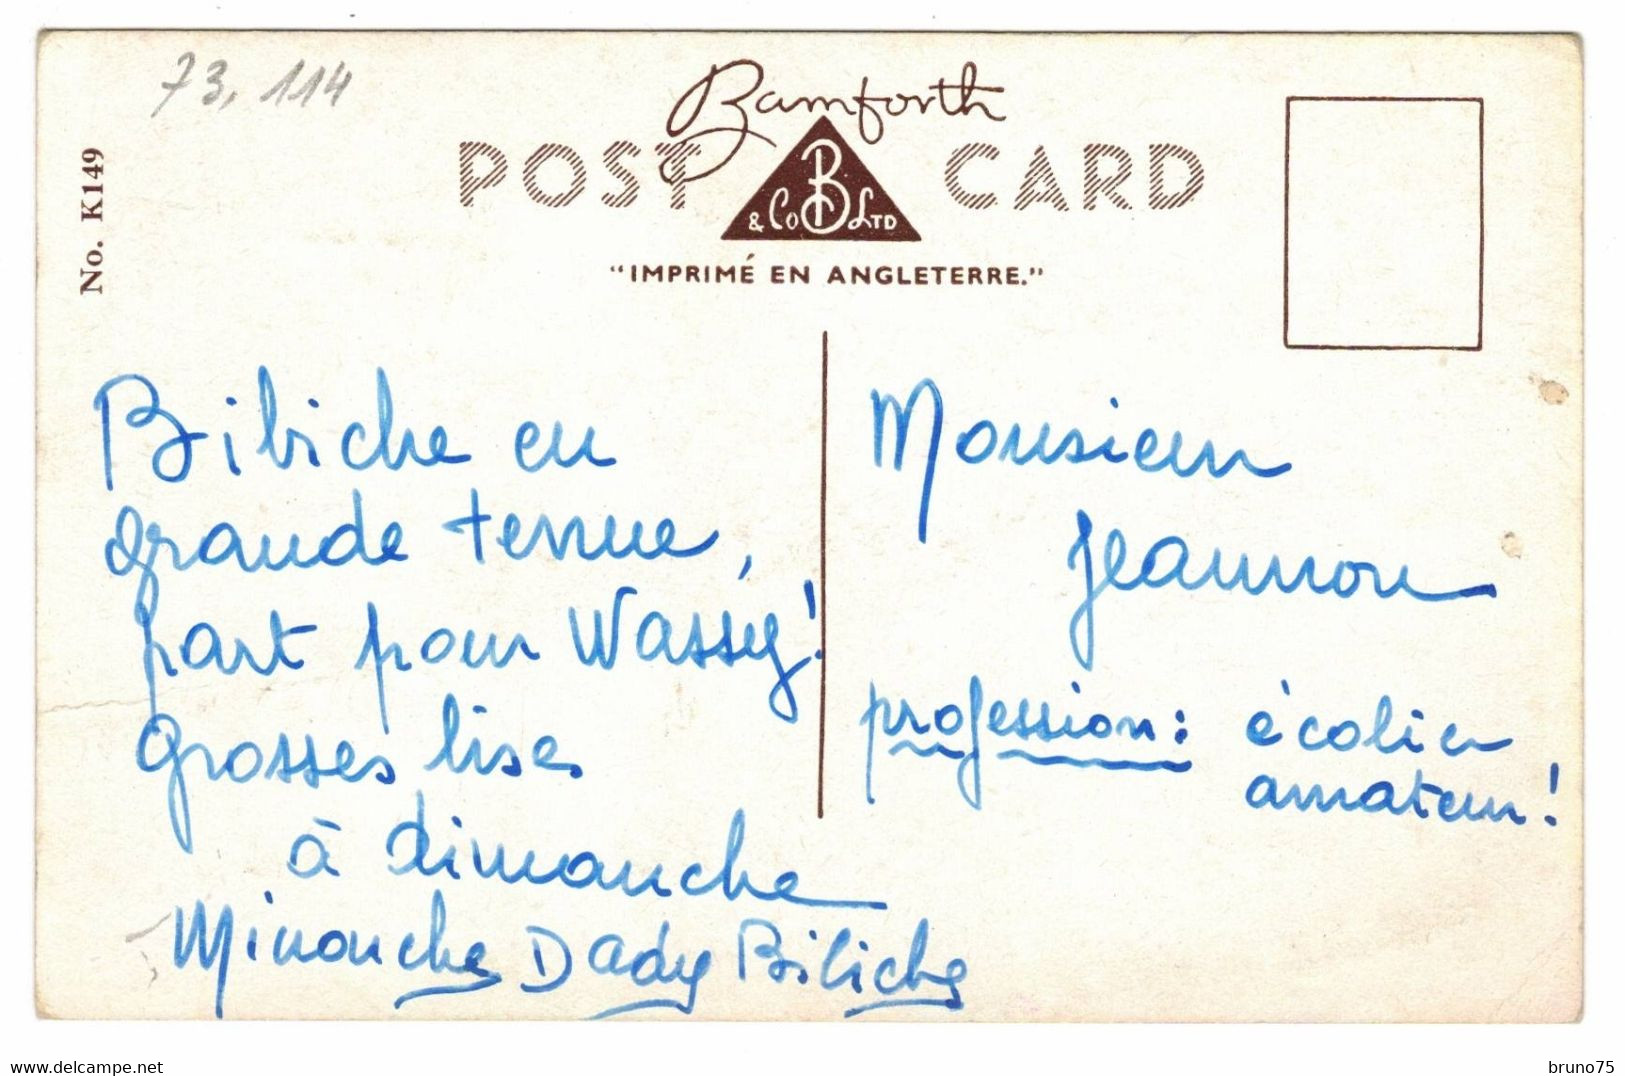 73, 114
Bamforth
POST CARD
& Co B LTD
"IMPRIMÉ EN ANGLETERRE."
No. K149
Bibiche en
grande tenue,
part pour Wassy!
grosses bises
à dimanche
Minouche Dady Bibiche
Monsieur
Jeannon
profession: écolier
amateur!
www.delcampe.net
bruno75